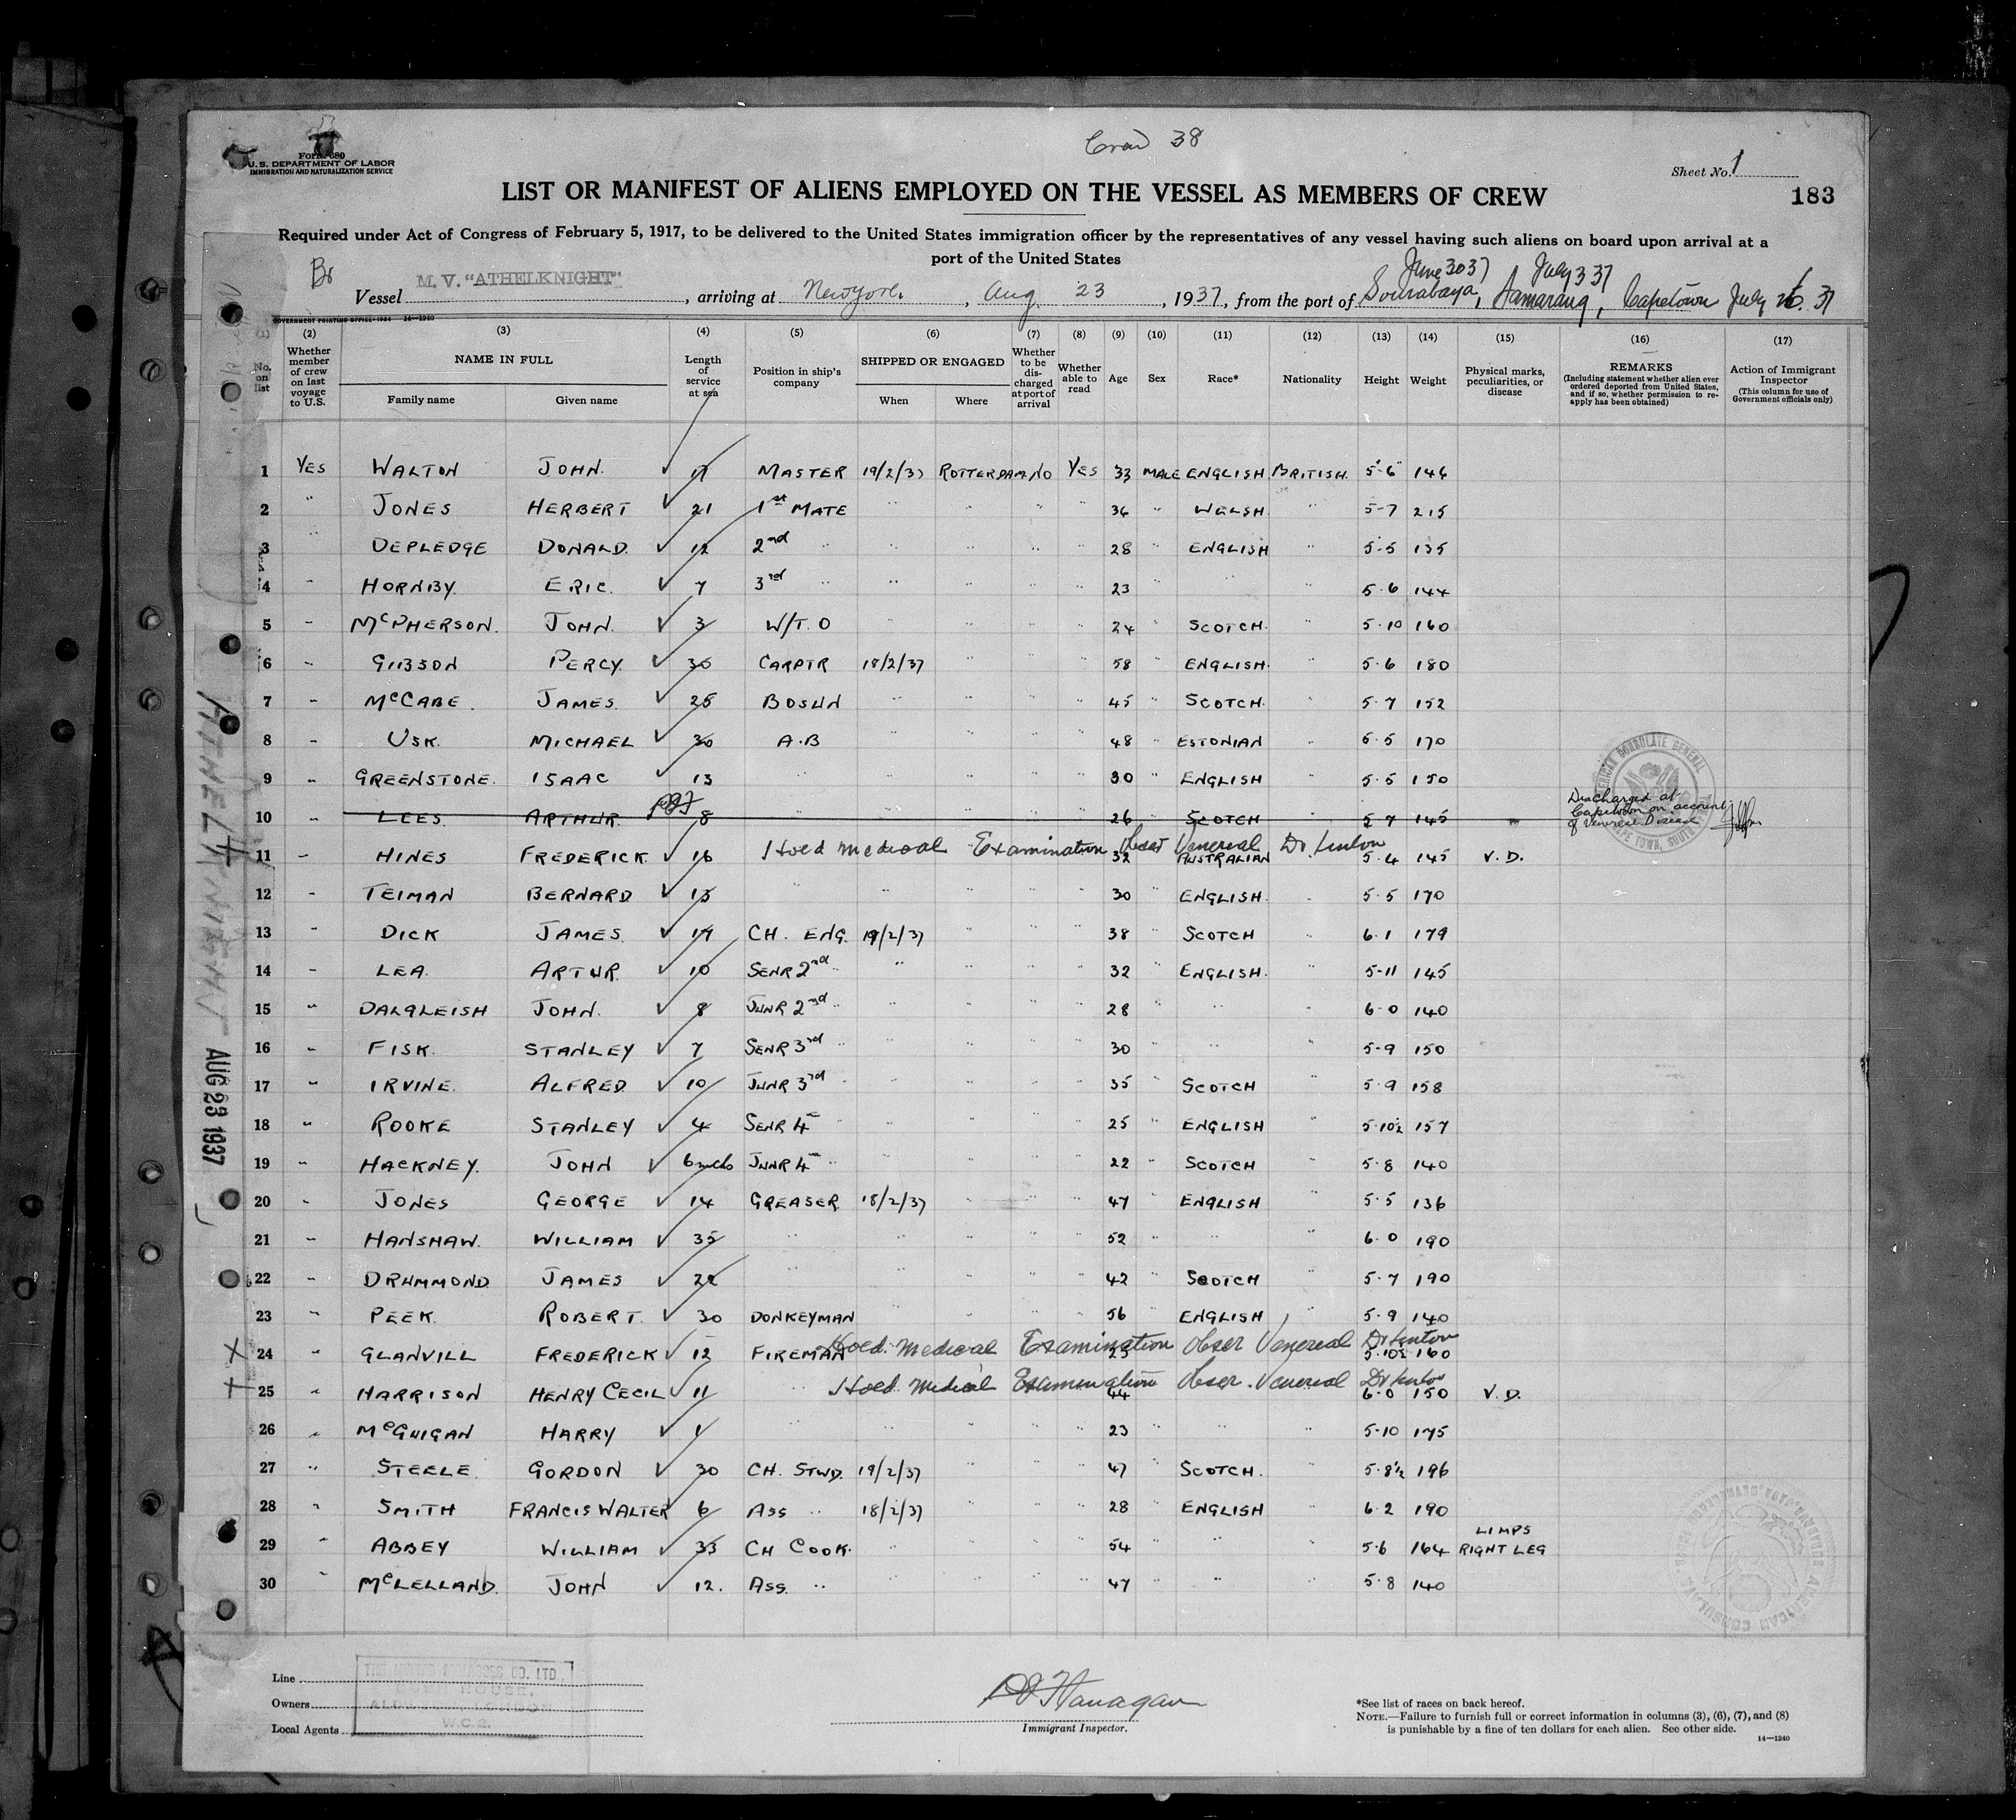 Crew 38
Form 680
U.S. DEPARTMENT OF LABOR
IMMIGRATION AND NATURALIZATION SERVICE
Sheet No. 1
183
LIST OR MANIFEST OF ALIENS EMPLOYED ON THE VESSEL AS MEMBERS OF CREW
Required under Act of Congress of February 5, 1917, to be delivered to the United States immigration officer by the representatives of any vessel having such aliens on board upon arrival at a
port of the United States
Br
June 30 37 July 3 37
Vessel M.V. "ATHELKNIGHT", arriving at New York, Aug 23, 1937, from the port of Sourabaya, Samarang, Capetown July 26. 37
GOVERNMENT PRINTING OFFICE: 1934 14—1240
(1) (2) (3) (4) (5) (6) (7) (8) (9) (10) (11) (12) (13) (14) (15) (16) (17)
No. on list Whether member of crew on last voyage to U.S. NAME IN FULL Family name Given name Length of service at sea Position in ship's company SHIPPED OR ENGAGED When Where Whether to be discharged at port of arrival Whether able to read Age Sex Race* Nationality Height Weight Physical marks, peculiarities, or disease REMARKS (Including statement whether alien ever ordered deported from United States, and if so, whether permission to re-apply has been obtained) Action of Immigrant Inspector (This column for use of Government officials only)
1 YES WALTON JOHN. ✓ 17 MASTER 19/2/37 ROTTERDAM NO YES 33 MALE ENGLISH BRITISH. 5-6 146
2 " JONES HERBERT ✓ 21 1st MATE " " " " 36 " WELSH. " 5-7 215
3 " DEPLEDGE DONALD. ✓ 12 2nd " " " " " 28 " ENGLISH " 5-5 135
4 " HORNBY. ERIC. ✓ 7 3rd " " " " " 23 " " " 5.6 144
5 " McPHERSON. JOHN. ✓ 3 W/T.O " " " " 24 " SCOTCH. " 5.10 160
6 " GIBSON PERCY. ✓ 30 CARPTR 18/2/37 " " " 58 " ENGLISH. " 5.6 180
7 " McCABE. JAMES. ✓ 25 BOSUN " " " " 45 " SCOTCH. " 5.7 152
8 " USK. MICHAEL ✓ 30 A.B " " " " 48 " ESTONIAN " 5.5 170
9 " GREENSTONE. ISAAC ✓ 13 " " " " " 30 " ENGLISH " 5.5 150
10 " LEES. ARTHUR. 8 " " " " " 26 " SCOTCH " 5-7 145 " Discharged at Capetown on account of Venereal Disease
11 " HINES FREDERICK. ✓ 16 Hoed medical Examination Obser Venereal 32 AUSTRALIAN 5.4 145 V.D.
12 " TEIMAN BERNARD ✓ 15 " " " " " 30 " ENGLISH. " 5.5 170
13 " DICK JAMES. ✓ 19 CH. ENG. 19/2/37 " " " 38 " SCOTCH " 6.1 179
14 " LEA. ARTUR. ✓ 10 SENR 2nd " " " " " 32 " ENGLISH. " 5-11 145
15 " DALGLEISH JOHN. ✓ 8 JUNR 2nd " " " " " 28 " " " 6-0 140
16 " FISK. STANLEY ✓ 7 SENR 3rd " " " " " 30 " " " 5-9 150
17 " IRVINE. ALFRED. ✓ 10 JUNR 3rd " " " " " 35 " SCOTCH " 5.9 158
18 " ROOKE STANLEY ✓ 4 SENR 4th " " " " " 25 " ENGLISH " 5.10½ 157
19 " HACKNEY. JOHN ✓ 6 mths JUNR 4th " " " " " 22 " SCOTCH " 5.8 140
20 " JONES GEORGE ✓ 14 GREASER 18/2/37 " " " 47 " ENGLISH " 5.5 136
21 " HANSHAW. WILLIAM ✓ 35 " " " " " 52 " " " 6.0 190
22 " DRUMMOND JAMES ✓ 22 " " " " " 42 " SCOTCH " 5.7 190
23 " PEEK. ROBERT. ✓ 30 DONKEYMAN " " " " 56 " ENGLISH " 5.9 140
24 " GLANVILL FREDERICK ✓ 12 FIREMAN Hoed. Medical Examination Obser Venereal 25 5.10½ 160
25 " HARRISON HENRY CECIL ✓ 11 " Hoed. Medical Examination Obser. Venereal 44 6.0 150 V.D.
26 " McGUIGAN HARRY ✓ 1 " " " " " 23 " " " 5-10 175
27 " STEELE. GORDON ✓ 30 CH. STWD. 19/2/37 " " " 47 " SCOTCH. " 5.8½ 196
28 " SMITH FRANCIS WALTER 6 ASS " 18/2/37 " " " 28 " ENGLISH " 6.2 190
29 " ABBEY WILLIAM ✓ 35 CH COOK. " " " " 54 " " " 5.6 164 LIMPS RIGHT LEG
30 " McLELLAND. JOHN ✓ 12. ASS. " " " " " 47 " " " 5.8 140
ATHELKNIGHT
AUG 23 1937
Line
Owners
Local Agents
Immigrant Inspector.
*See list of races on back hereof.
NOTE.—Failure to furnish full or correct information in columns (3), (6), (7), and (8)
is punishable by a fine of ten dollars for each alien. See other side.
14—1240